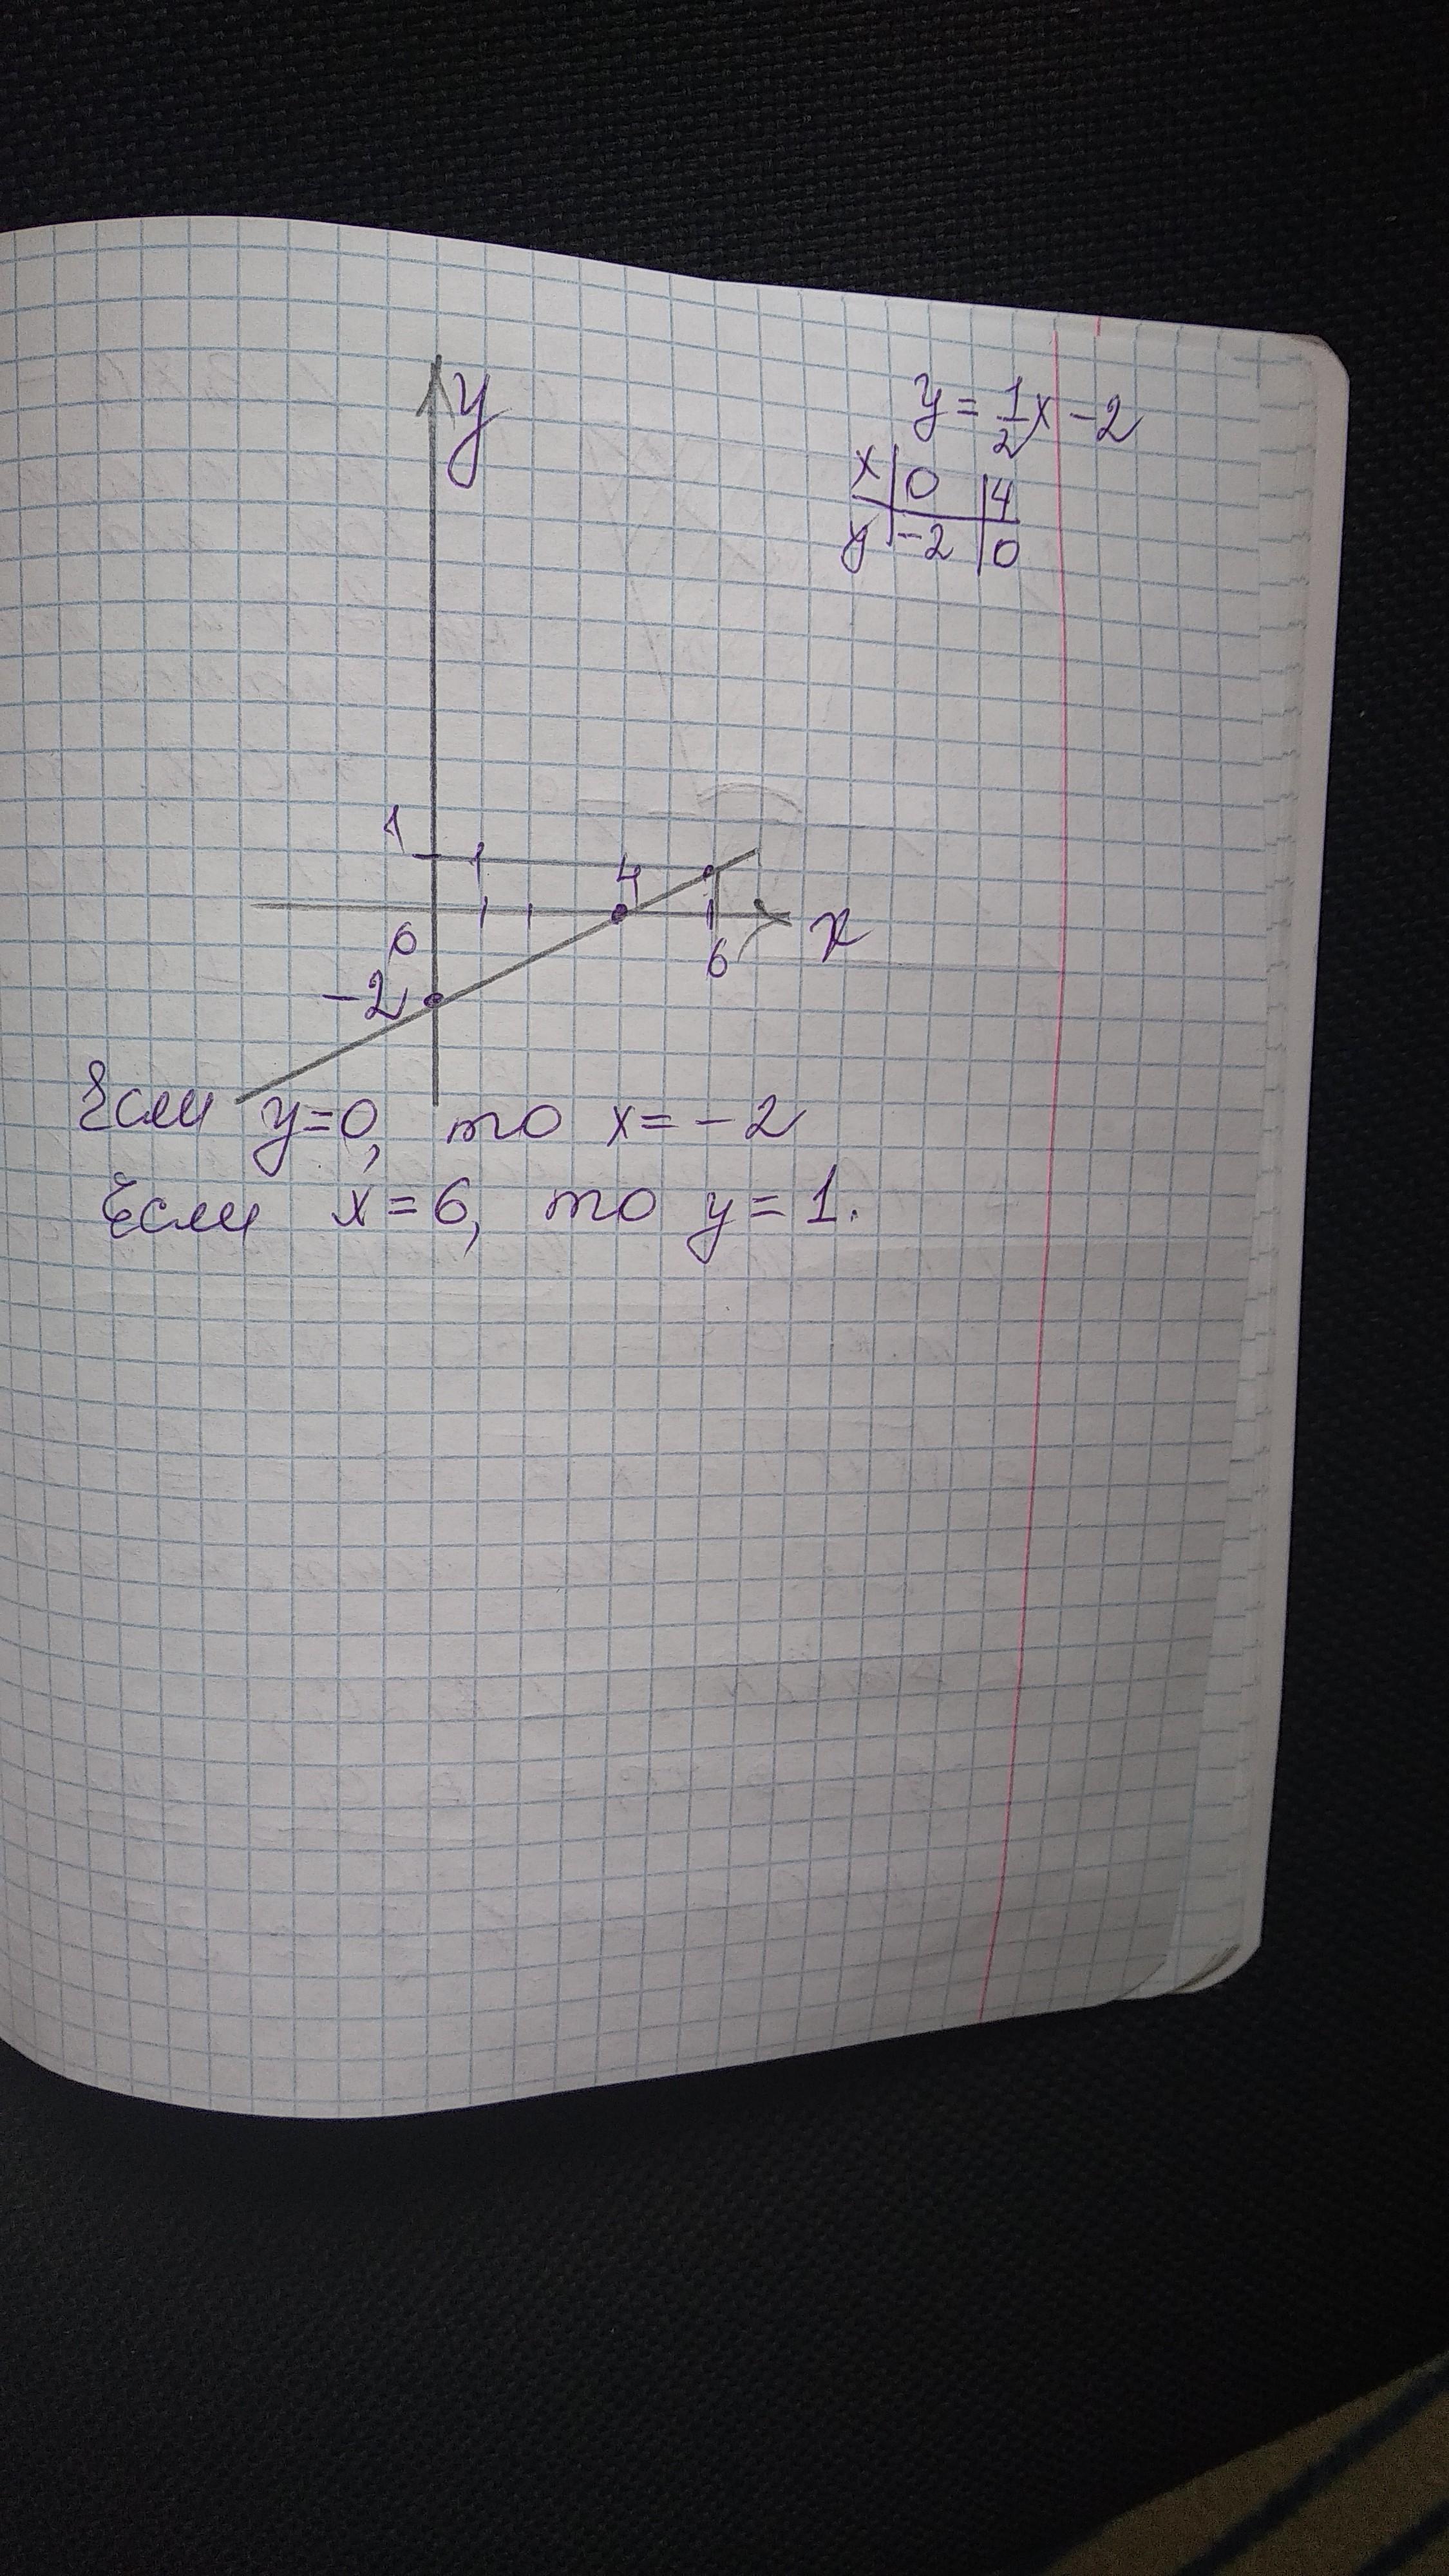 y
y = 1/2 x - 2
x | 0 | 4
y | -2 | 0
1
1
4
x
0
6
-2
Если y=0, то x = -2
Если x = 6, то y = 1.